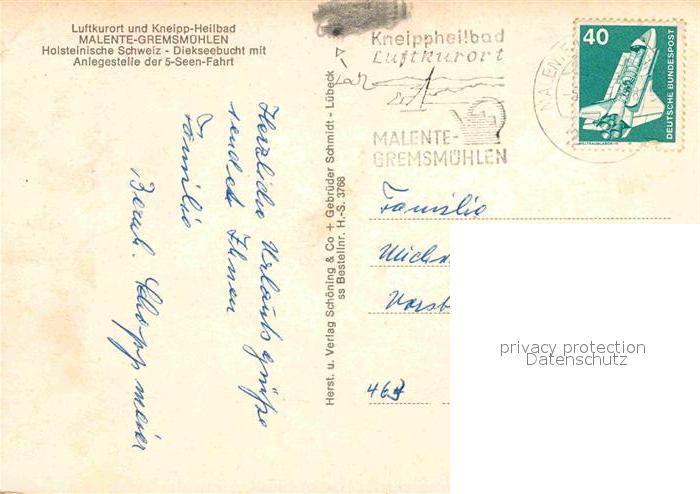 Luftkurort und Kneipp-Heilbad
MALENTE-GREMSMÜHLEN
Holsteinische Schweiz - Diekseebucht mit
Anlegestelle der 5-Seen-Fahrt
Herzliche Urlaubsgrüße
sendet Ihnen
Familie
Bernh. Kloppmeier
Herst. u. Verlag Schöning & Co + Gebrüder Schmidt - Lübeck
ss Bestellnr. H.-S. 3768
Kneippheilbad
Luftkurort
MALENTE-
GREMSMÜHLEN
MALENTE
40
DEUTSCHE BUNDESPOST
WELTRAUMLABOR
Familie
privacy protection
Datenschutz